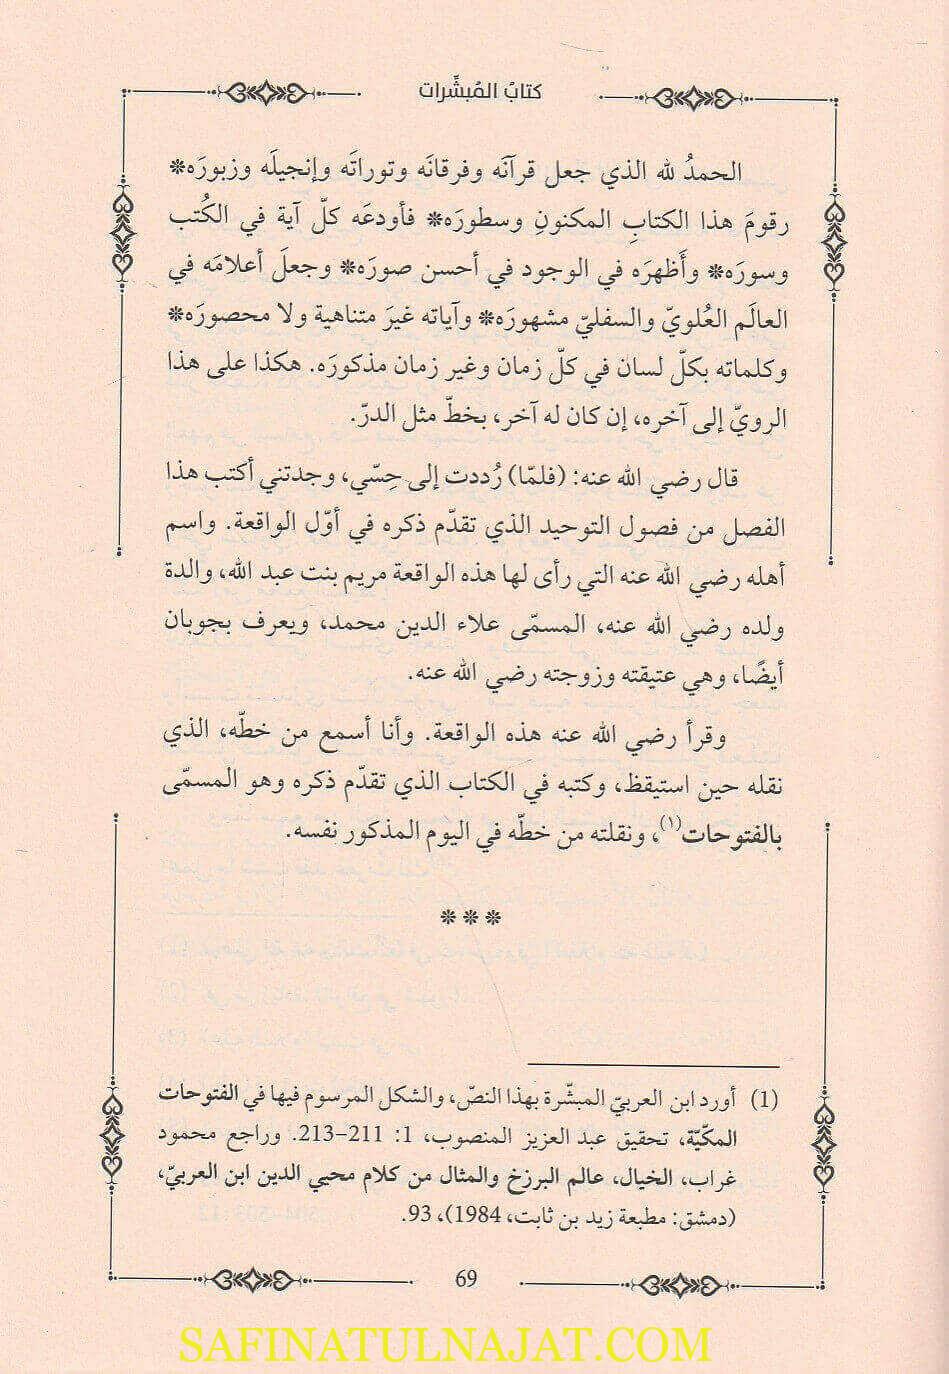 كتابُ المُبشِّرات
الحمدُ لله الذي جعل قرآنَه وفرقانَه وتوراتَه وإنجيلَه وزبورَه*
رقومَ هذا الكتابِ المكنونِ وسطورَه* فأودعَه كلّ آية في الكُتب
وسورَه* وأَظهرَه في الوجود في أحسن صورَه* وجعلَ أعلامَه في
العالَم العُلويّ والسفليّ مشهورَه* وآياته غيرَ متناهية ولا محصورَه*
وكلماته بكلّ لسان في كلّ زمان وغير زمان مذكورَه. هكذا على هذا
الرويّ إلى آخره، إن كان له آخر، بخطّ مثل الدرّ.
قال رضي الله عنه: (فلمّا) رُددت إلى حِسّي، وجدتني أكتب هذا
الفصل من فصول التوحيد الذي تقدّم ذكره في أوّل الواقعة. واسم
أهله رضي الله عنه التي رأى لها هذه الواقعة مريم بنت عبد الله، والدة
ولده رضي الله عنه، المسمّى علاء الدين محمد، ويعرف بجوبان
أيضًا، وهي عتيقته وزوجته رضي الله عنه.
وقرأ رضي الله عنه هذه الواقعة. وأنا أسمع من خطّه، الذي
نقله حين استيقظ، وكتبه في الكتاب الذي تقدّم ذكره وهو المسمّى
بالفتوحات(١)، ونقلته من خطّه في اليوم المذكور نفسه.
* * *
(1) أورد ابن العربيّ المبشّرة بهذا النصّ، والشكل المرسوم فيها في الفتوحات
المكّيّة، تحقيق عبد العزيز المنصوب، 1: 211–213. وراجع محمود
غراب، الخيال، عالم البرزخ والمثال من كلام محيي الدين ابن العربيّ،
(دمشق: مطبعة زيد بن ثابت، 1984)، 93.
69
SAFINATULNAJAT.COM